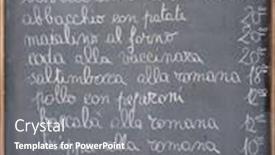 abbacchio con patate 20
maialino al forno 20
coda alla vaccinara 20
saltimbocca alla romana 18
pollo con peperoni
alla romana
alla romana 10
Crystal Standing
Templates for PowerPoint